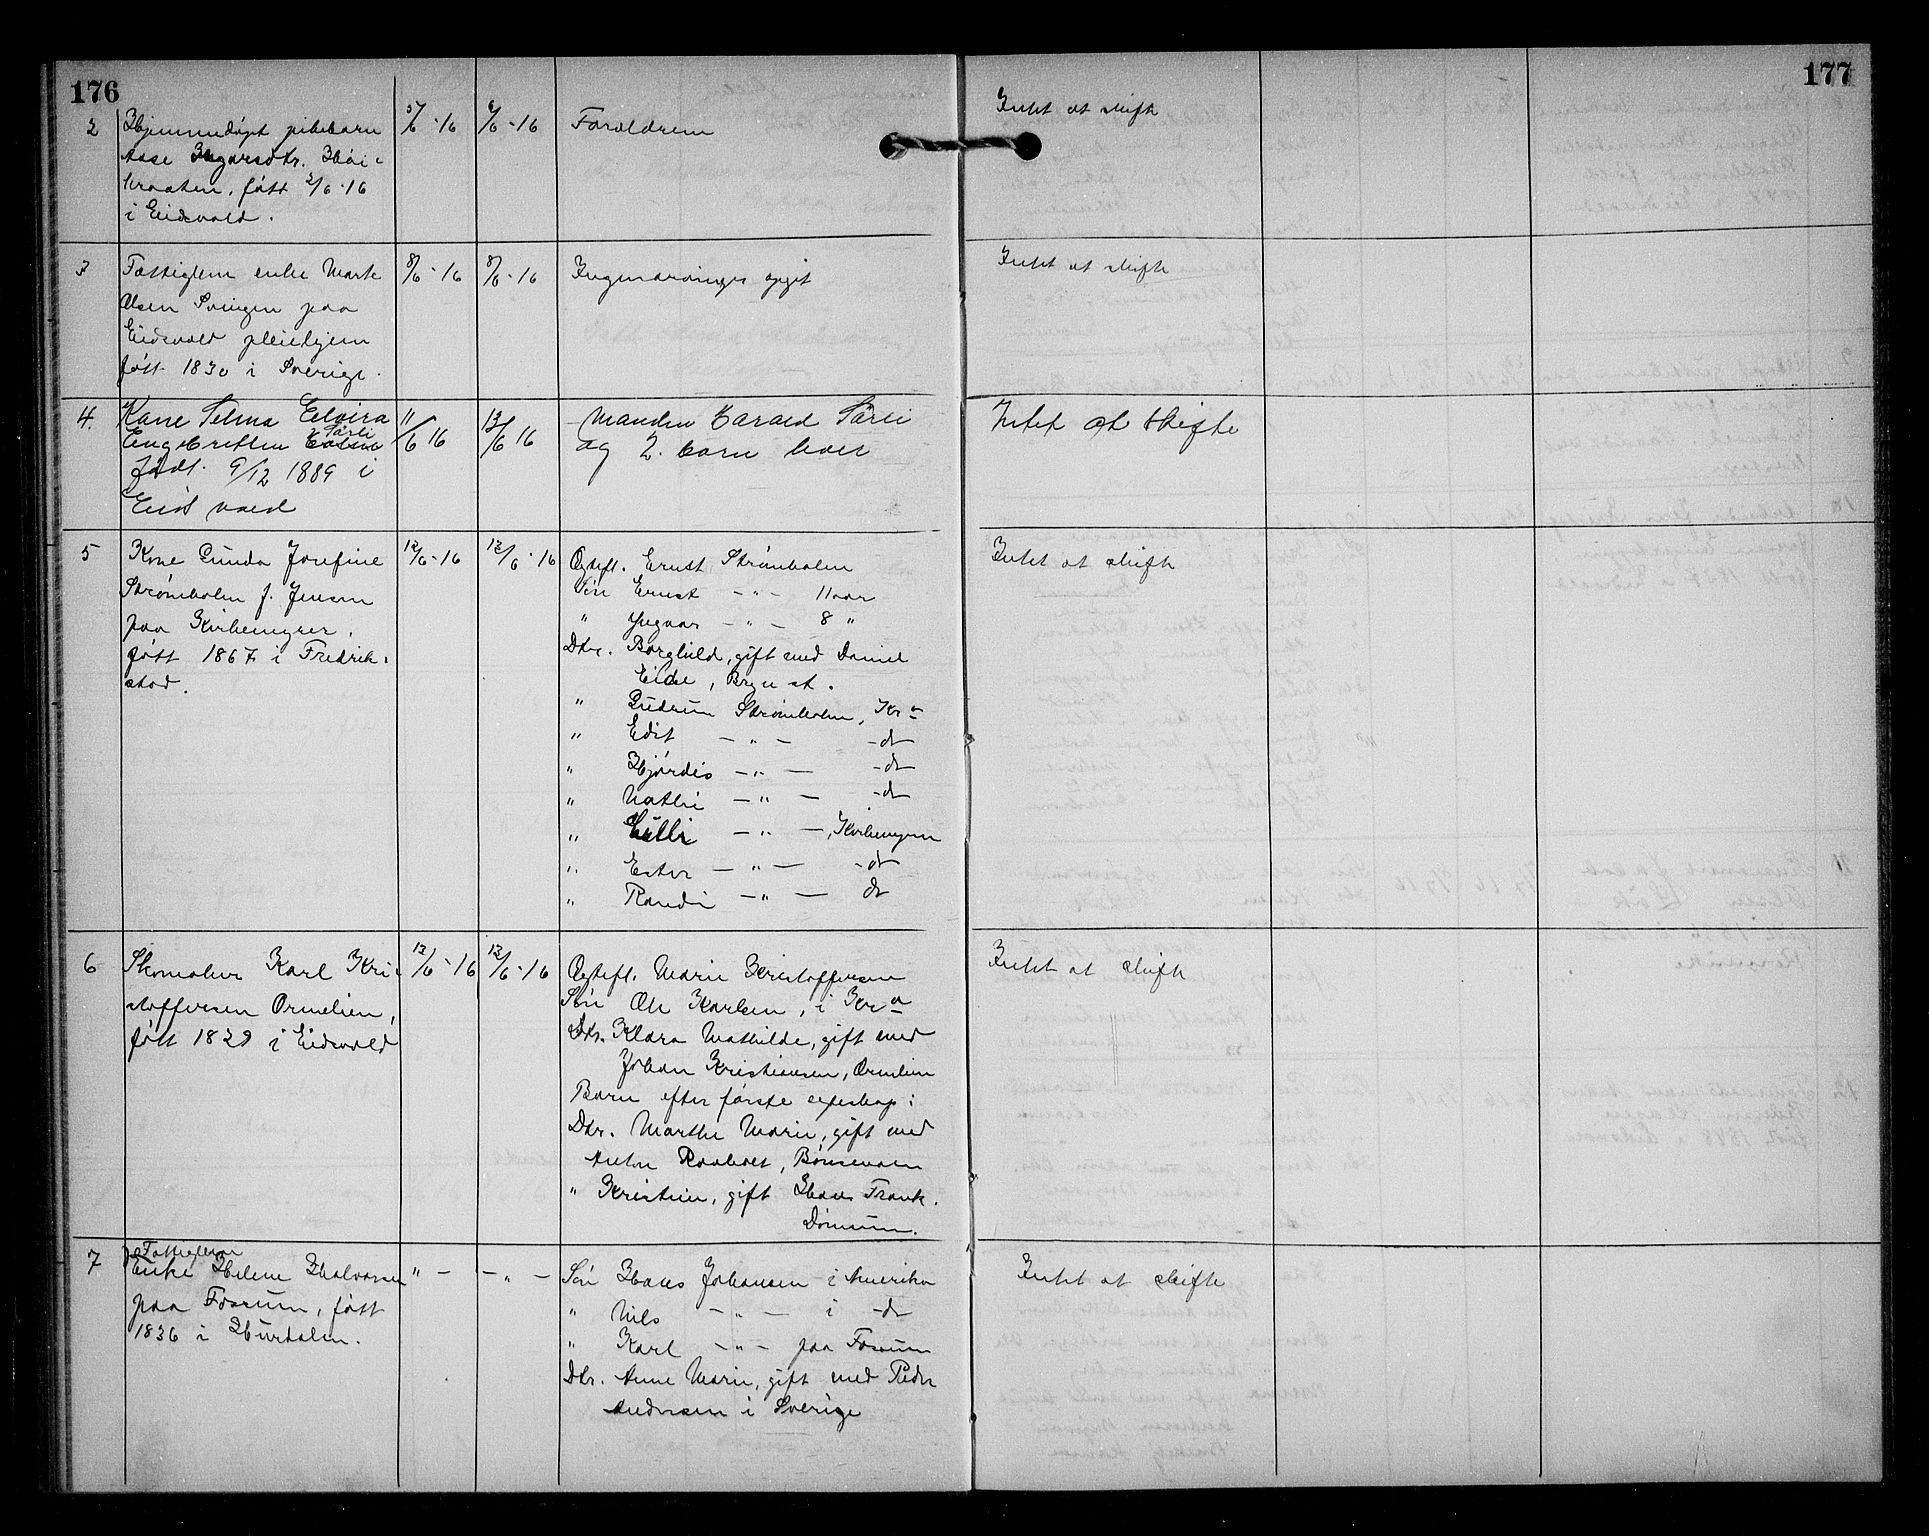 176
177
2 Hjemmedøpt pikebarn 5/6-16 6/6-16 Forældrene Intet at skifte
Aase Ingvarsdtr. Høi-
braaten, født 2/6-16
i Eidsvold.
3 Fattiglem enke Marte 8/6-16 8/6-16 Ingen arvinger opgit Intet at skifte
Olsen Svingen paa
Eidsvold pleiehjem
født 1830 i Sverige.
4. Kone Selma Elvira 11/6 16 13/6 16 Manden Harald Sørli Intet at skifte
Engebretsen Sørli og 2. barn lever
født. 9/12 1889 i
Eidsvold
5 Kone Gunda Josefine 12/6-16 13/6-16 Egtef. Ernst Strømholm Intet at skifte
Strømholm f. Jensen Søn Ernst -"- 11 aar
paa Kirkemyrer. " Yngvar -"- 8 "
født 1867 i Fredrik- Dtr. Borghild, gift med Daniel
stad. Eide, Bryn st.
" Gudrun Strømholm, Kra
" Edit -"- -dt
" Hjørdis -"- -dt
" Nathi -"- -dt
" Lilli -"-, Kirkemyren
" Ester -"- -dt
" Randi -"- dt
6 Skomaker Karl Kri- 12/6-16 13/6-16 Egtef. Marie Kristoffersen Intet at skifte
stoffersen Ormelien, Søn Ole Karlsen, i Kra
født 1829 i Eidsvold Dtr. Klara Mathilde, gift med
Johan Kristiansen, Ormlien
Barn efter første egteskap:
Dtr. Marthe Marie, gift med
Anton Raaholt, Bønsmoen
" Kristine, gift Hans Frank.
Dønnum.
7 Fattiglem
Enke Helene Halvorsen "- -"- Søn Hans Johansen i Amerika Intet at skifte
paa Fossum, født " Nils -"- i -dt
1836 i Hurdalen. " Karl -"- paa Fossum
Dtr. Anne Marie, gift med Peder
Andersen i Sverige